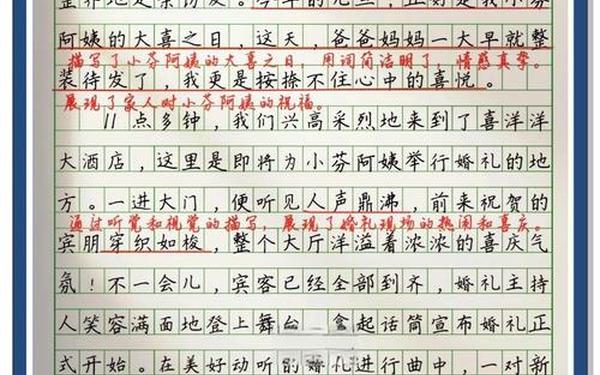 整齐地是亲历友。今年的元旦，正好是我小芬
阿姨的大喜之日，这天，爸爸妈妈一大早就整
描写了小芬阿姨的大喜之日，用词简洁明了，情感真挚。
装待发了，我更是按捺不住心中的喜悦。
展现了家人对小芬阿姨的祝福。
11点多钟，我们兴高采烈地来到了喜洋洋
大酒店，这里是即将为小芬阿姨举行婚礼的地
方。一进大门，便听见人声鼎沸，前来祝贺的
通过听觉和视觉的描写，展现了婚礼现场的热闹和喜庆。
宾朋穿织如梭，整个大厅洋溢着浓浓的喜庆气
氛！不一会儿，宾客已经全部到齐，婚礼主持
人笑容满面地登上舞台，拿起话筒宣布婚礼正
式开始。在美好动听的婚礼进行曲中，一对新